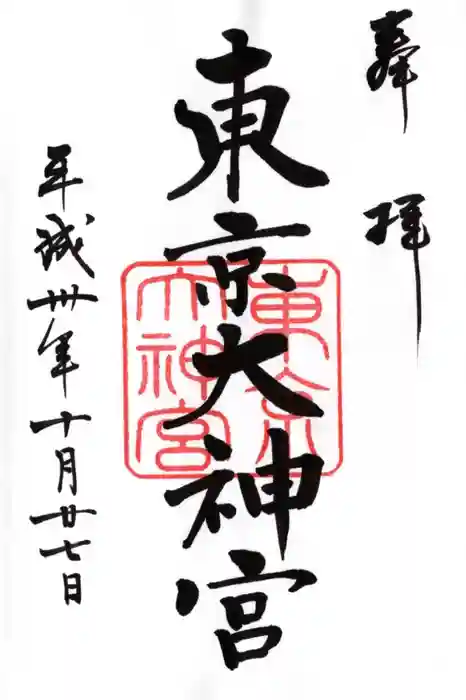 奉拝
東京大神宮
東京
大神宮
平成卅年十月廿七日